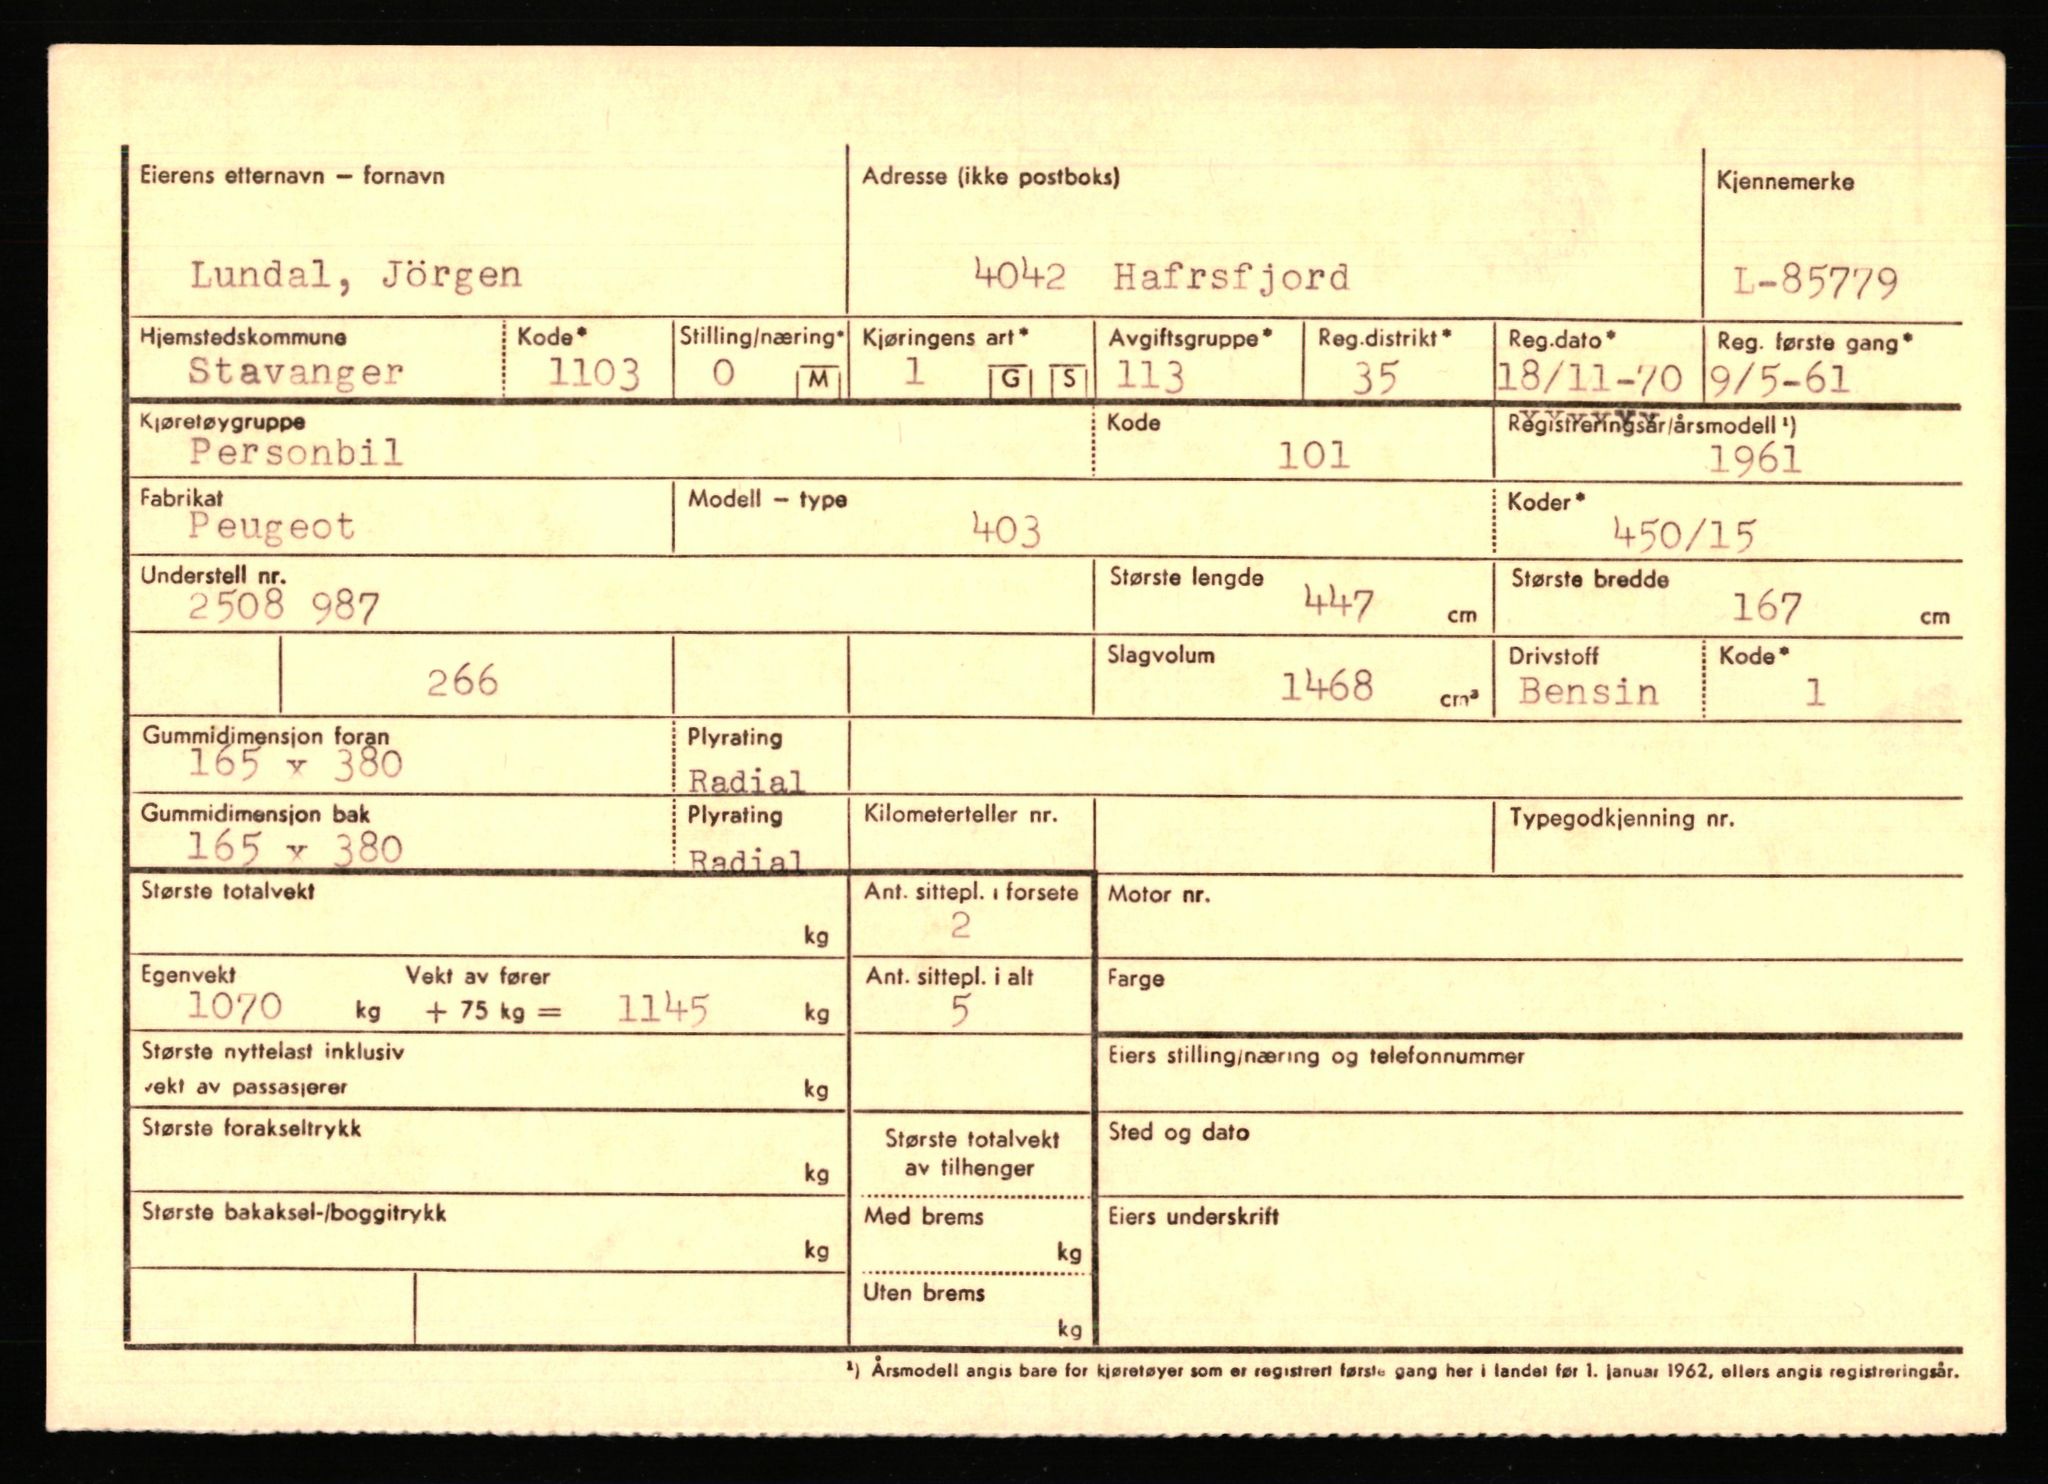 Eierens etternavn – fornavn Adresse (ikke postboks) Kjennemerke
Lundal, Jörgen 4042 Hafrsfjord L-85779
Hjemstedskommune Kode* Stilling/næring* Kjøringens art* Avgiftsgruppe* Reg.distrikt* Reg.dato* Reg. første gang*
Stavanger 1103 0 M 1 G S 113 35 18/11-70 9/5-61
Kjøretøygruppe Kode Registreringsår/årsmodell ¹)
Personbil 101 1961
Fabrikat Modell – type Koder*
Peugeot 403 450/15
Understell nr. Største lengde Største bredde
2508 987 447 cm 167 cm
Slagvolum Drivstoff Kode*
266 1468 cm³ Bensin 1
Gummidimensjon foran Plyrating
165 x 380 Radial
Gummidimensjon bak Plyrating Kilometerteller nr. Typegodkjenning nr.
165 x 380 Radial
Største totalvekt Ant. sittepl. i forsete Motor nr.
kg 2
Egenvekt Vekt av fører Ant. sittepl. i alt Farge
1070 kg + 75 kg = 1145 kg 5
Største nyttelast inklusiv Eiers stilling/næring og telefonnummer
vekt av passasjerer kg
Største forakseltrykk Største totalvekt Sted og dato
kg av tilhenger
Største bakaksel-/boggitrykk Med brems Eiers underskrift
kg kg
Uten brems
kg
¹) Årsmodell angis bare for kjøretøyer som er registrert første gang her i landet før 1. januar 1962, ellers angis registreringsår.